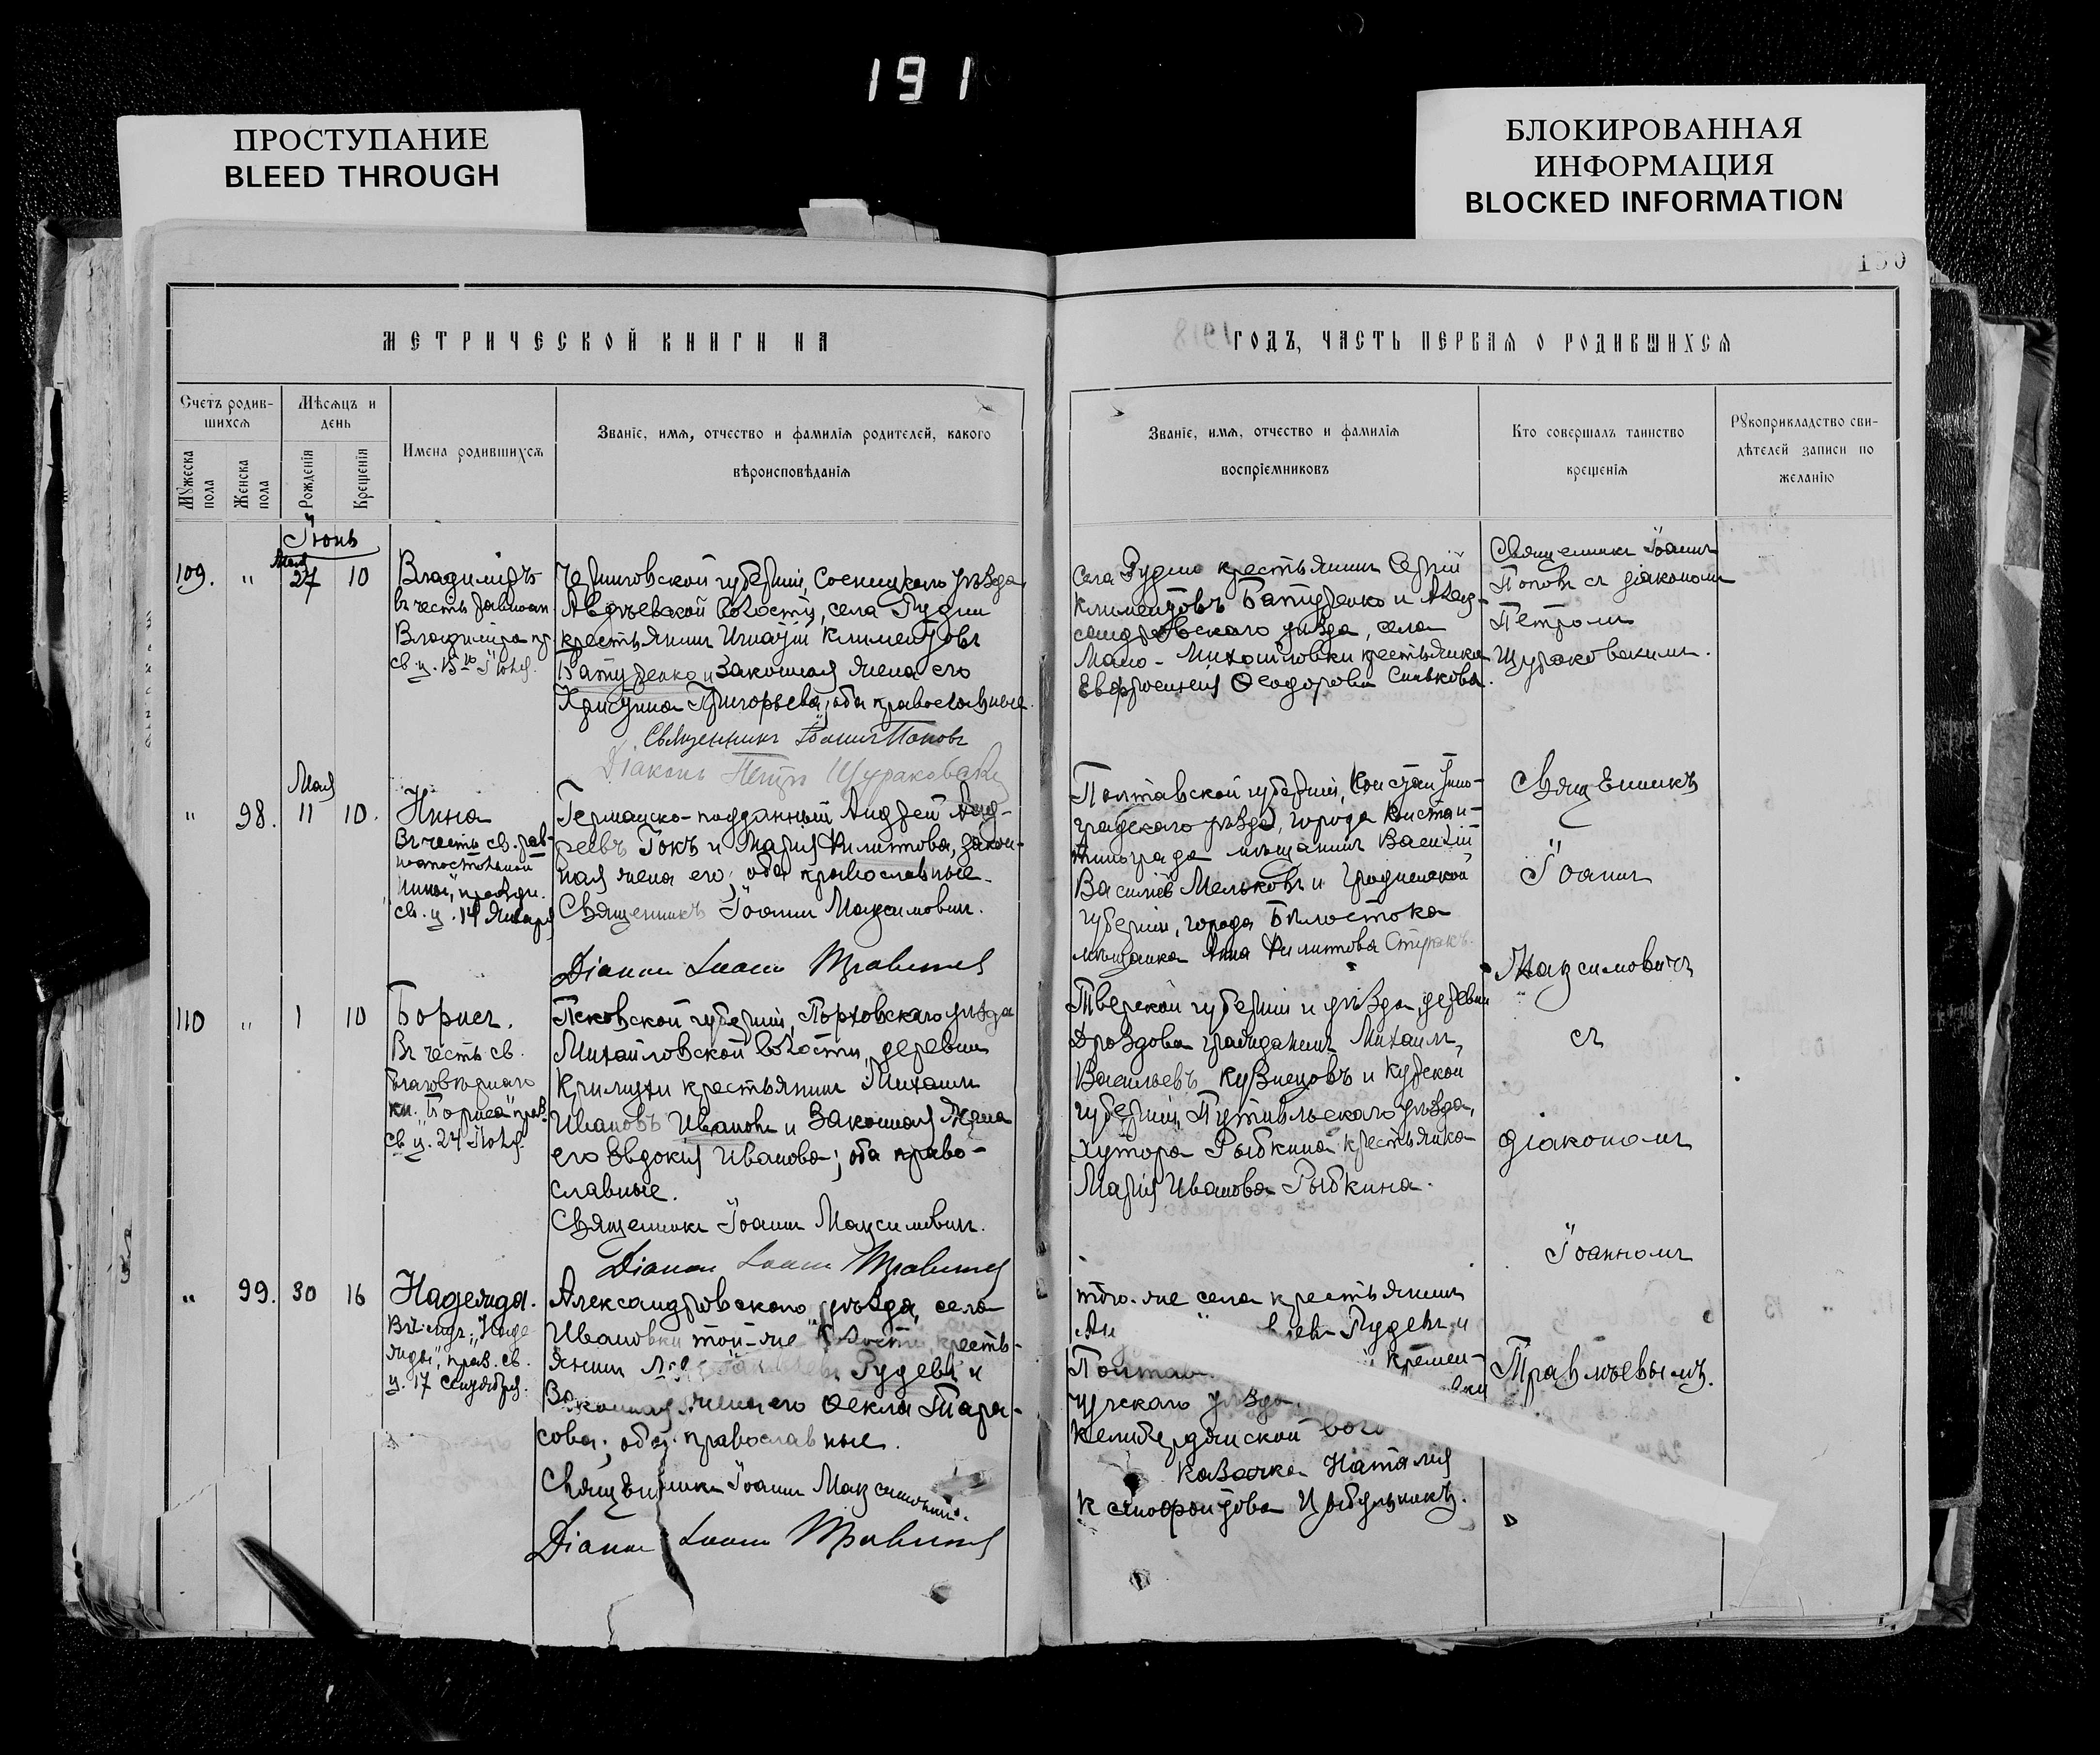 191
ПРОСТУПАНИЕ
BLEED THROUGH
БЛОКИРОВАННАЯ
ИНФОРМАЦИЯ
BLOCKED INFORMATION
МЕТРИЧЕСКОЙ КНИГИ НА
Счетъ родив-
шихся
Мѣсяцъ и
день
Мужеска
пола
Женска
пола
Рожденія
Крещенія
Имена родившихся
Званіе, имя, отчество и фамилія родителей, какого
вѣроисповѣданія
Іюнь
109. " Мая 27 10
Владиміръ
въ честь равноап.
Владиміра пр.
св. ц. 15го Іюля.
Черниговской губерніи, Сосницкаго уѣзда,
Авдѣевской волости, села Рудни
крестьянинъ Игнатій Климентовъ
Батуренко и законная жена его
Христина Григорьева, оба православные.
Священникъ Іоаннъ Поповъ
Діаконъ Петръ Щураковскій
Мая
" 98. 11 10.
Нина
Въ честь св. рав-
ноапостольной
"Нины", праздн.
св. ц. 14 Января
Германско-подданный Андрей Анд-
реевъ Гокъ и Марія Филиппова, закон-
ная жена его; оба православные.
Священникъ Іоаннъ Максимовичъ.
Діаконъ Іоаннъ
110 " 1 10
Борисъ.
Въ честь св.
благовѣрнаго
кн. "Бориса" праз.
св. ц. 24 Іюля.
Псковской губерніи, Порховскаго уѣзда
Михайловской волости, деревни
крестьянинъ Михаилъ
Ивановъ Ивановъ и законная жена
его Евдокія Иванова; оба право-
славные.
Священникъ Іоаннъ Максимовичъ.
Діаконъ Іоаннъ
" 99. 30 16
Надежда.
Въ честь "Наде-
жды", праз. св.
ц. 17 Сентября.
Александровскаго уѣзда, села
Ивановки той-же волости, кресть-
янинъ Рудевъ и
Законная жена его Ѳекла Тара-
сова; оба православные.
Священникъ Іоаннъ Максимовичъ.
Діаконъ Іоаннъ
190
1918
ГОДЪ, ЧАСТЬ ПЕРВАЯ О РОДИВШИХСЯ
Званіе, имя, отчество и фамилія
воспріемниковъ
Кто совершалъ таинство
крещенія
Рукоприкладство сви-
дѣтелей записи по
желанію
Села Рудни крестьянинъ Сергій
Климентовъ Батуренко и Алек-
сандровскаго уѣзда, села
Мало-Михайловки крестьянка
Евфросинія Ѳеодорова Синькова.
Священникъ Іоаннъ
Поповъ съ діакономъ
Петромъ
Щураковскимъ.
Полтавской губерніи, Константино-
градскаго уѣзда, города Констан-
тинограда мѣщанинъ Василій
Васильевъ Мельковъ и Гродненской
губерніи, города Бѣлостока
мѣщанка Анна Филиппова
Священникъ
Іоаннъ
Максимовичъ
съ
діакономъ
Іоанномъ
Травлѣевымъ.
Тверской губерніи и уѣзда, деревни
Дроздова гражданинъ Михаилъ
Васильевъ Кузнецовъ и Курской
губерніи, Путивльскаго уѣзда,
хутора Рыбкина крестьянка
Марія Иванова Рыбкина.
того-же села крестьянинъ
Рудевъ и
Полтав кремен-
чугскаго уѣзда
Келебердянской воло
козачка Наталія
Ксенофонтова Цыбульникъ.